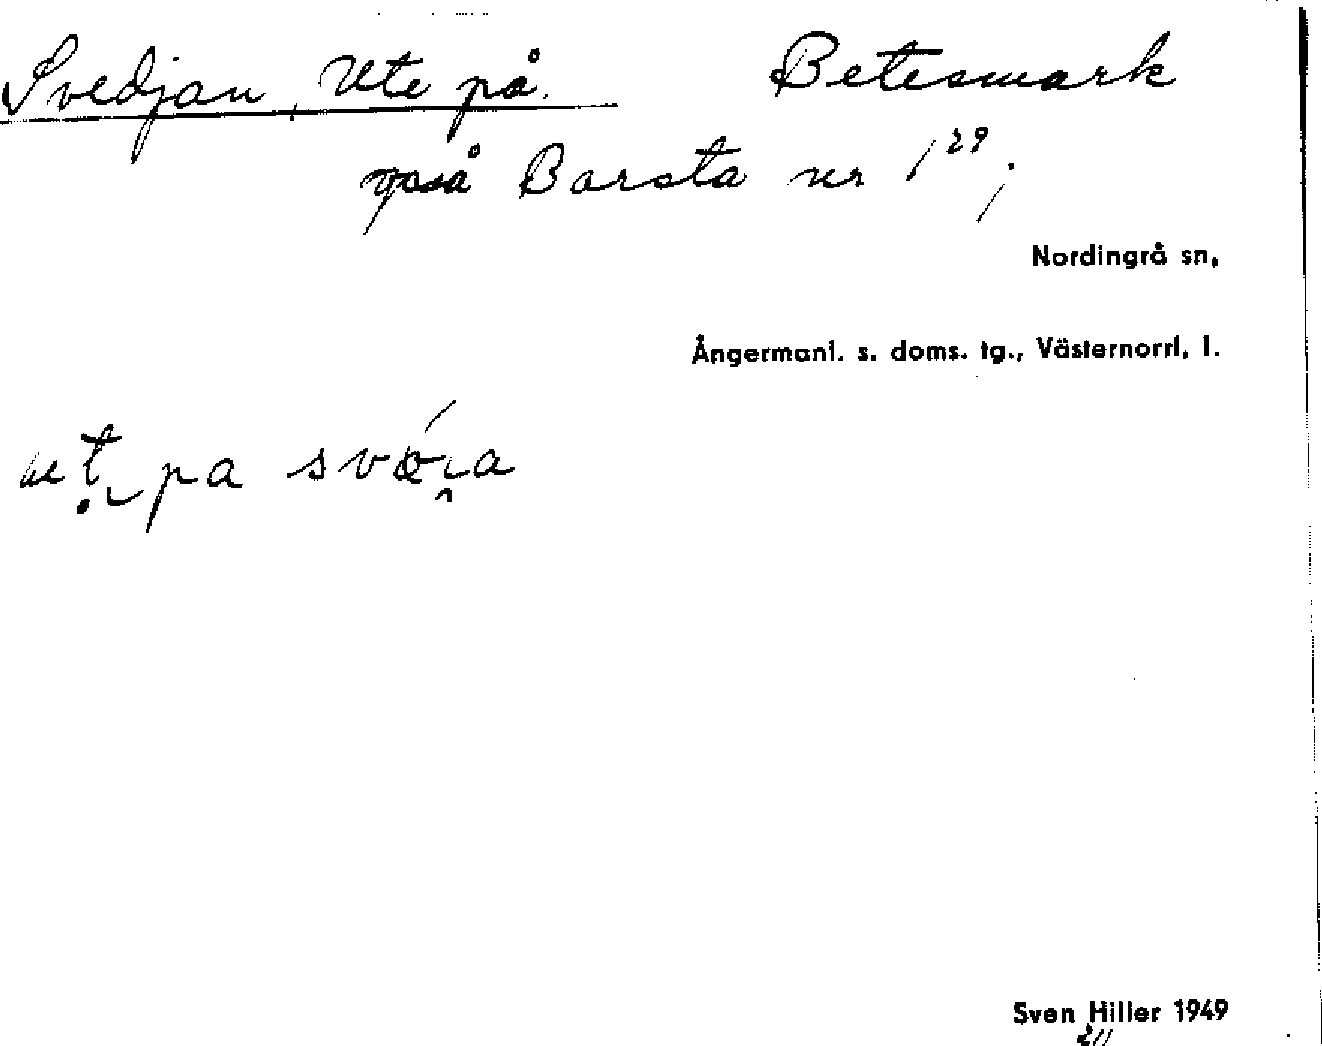 Svedjan, Ute på. Betesmark
på Barsta nr 1²⁹,
Nordingrå sn,
Ångermanl. s. doms. tg., Västernorrl. l.
pa
Sven Hiller 1949